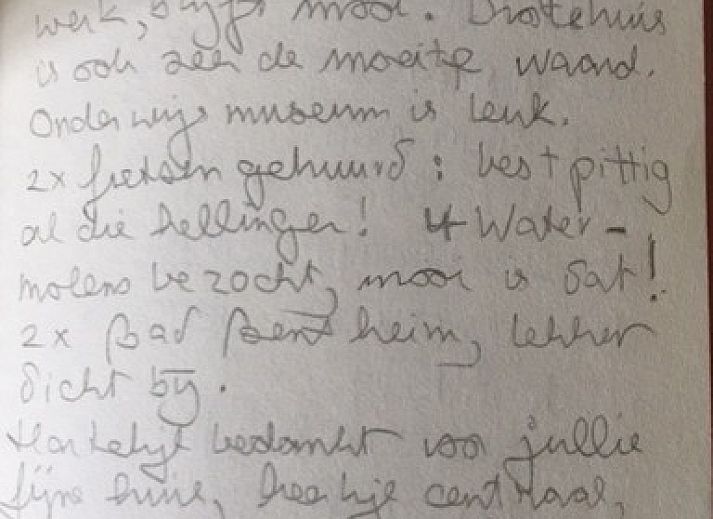 werk, blijft mooi. Drostehuis
is ook zeer de moeite waard.
Onderwijs museum is leuk.
2x fietsen gehuurd: best pittig
al die hellingen! 4 Water-
molens bezocht, mooi is dat!
2x Bad Bentheim, lekker
dicht bij.
Hartelijk bedankt voor jullie
fijne huis, heerlijk centraal,